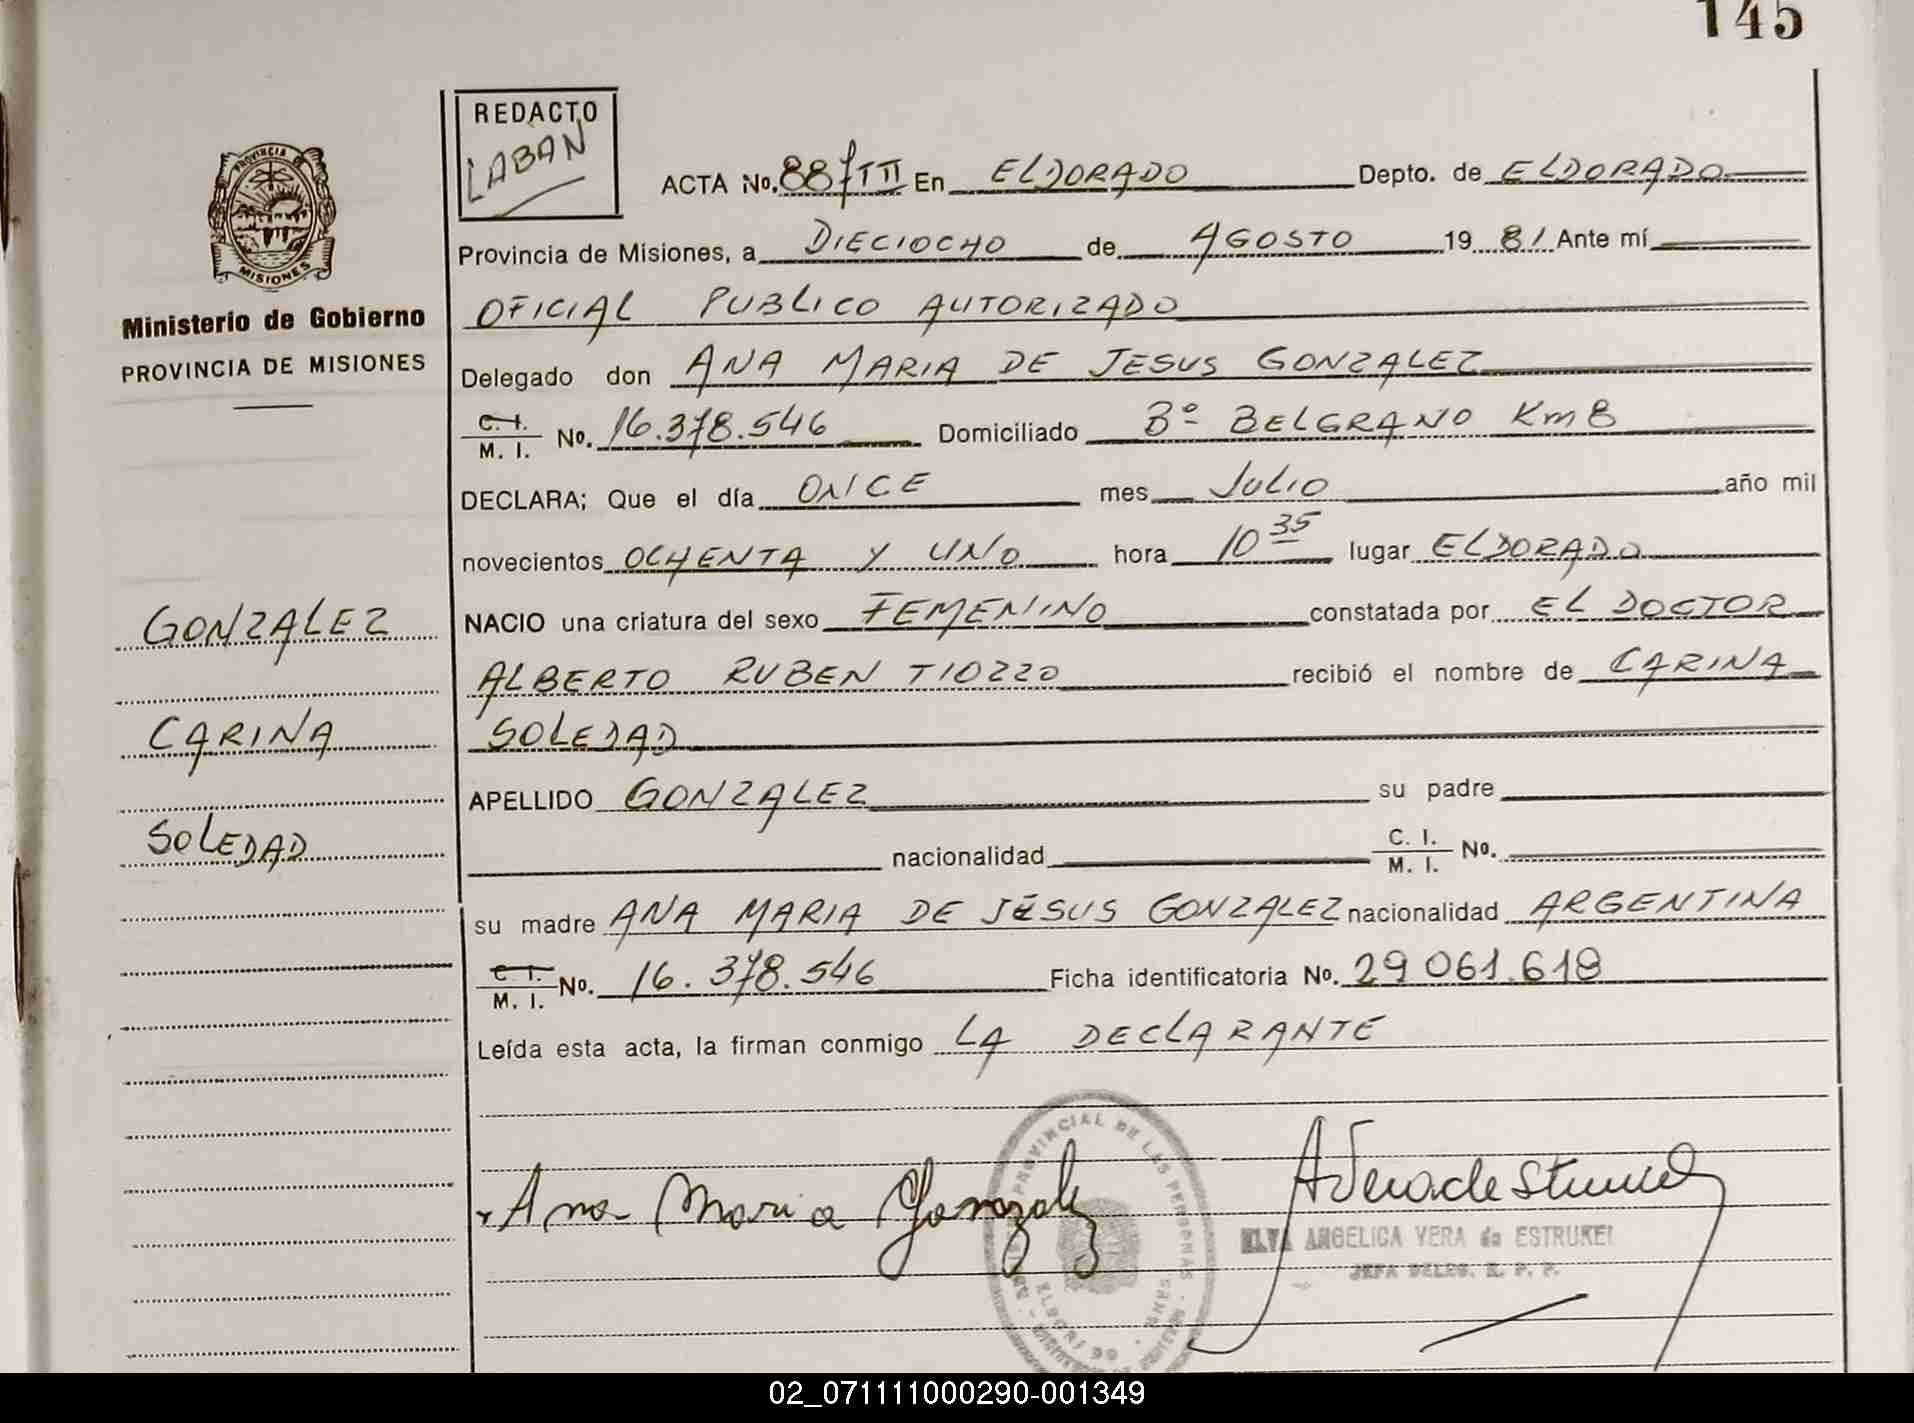 145
REDACTO
LABAN
PROVINCIA DE
MISIONES
Ministerio de Gobierno
PROVINCIA DE MISIONES
ACTA No. 887 TII En ELDORADO Depto. de ELDORADO
Provincia de Misiones, a DIECIOCHO de AGOSTO 19 81 Ante mí
OFICIAL PUBLICO AUTORIZADO
Delegado don ANA MARIA DE JESUS GONZALEZ
C. I. / M. I. No. 16.378.546 Domiciliado Bº BELGRANO Km 8
DECLARA; Que el día ONCE mes JULIO año mil
novecientos OCHENTA Y UNO hora 10 35 lugar ELDORADO
NACIO una criatura del sexo FEMENINO constatada por EL DOCTOR
ALBERTO RUBEN TIOZZO recibió el nombre de CARINA
SOLEDAD
APELLIDO GONZALEZ su padre
nacionalidad C. I. / M. I. No.
su madre ANA MARIA DE JESUS GONZALEZ nacionalidad ARGENTINA
C. I. / M. I. No. 16.378.546 Ficha identificatoria No. 29 061.618
Leída esta acta, la firman conmigo LA DECLARANTE
GONZALEZ
CARINA
SOLEDAD
Ana Maria Gonzalez
PROVINCIAL DE LAS PERSONAS
A Vera de Estrukel
ELVA ANGELICA VERA de ESTRUKEL
JEFA DELEG. R. P. P.
02_071111000290-001349